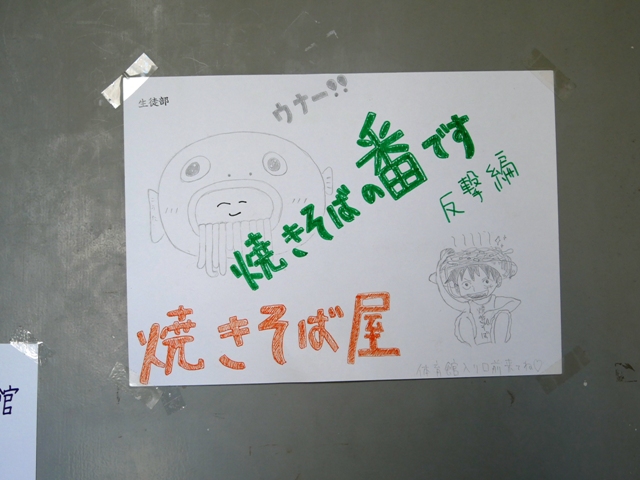 生徒部
ウナー!!
焼きそばの番です
反撃編
焼きそば屋
体育館入り口前来てね♡
館